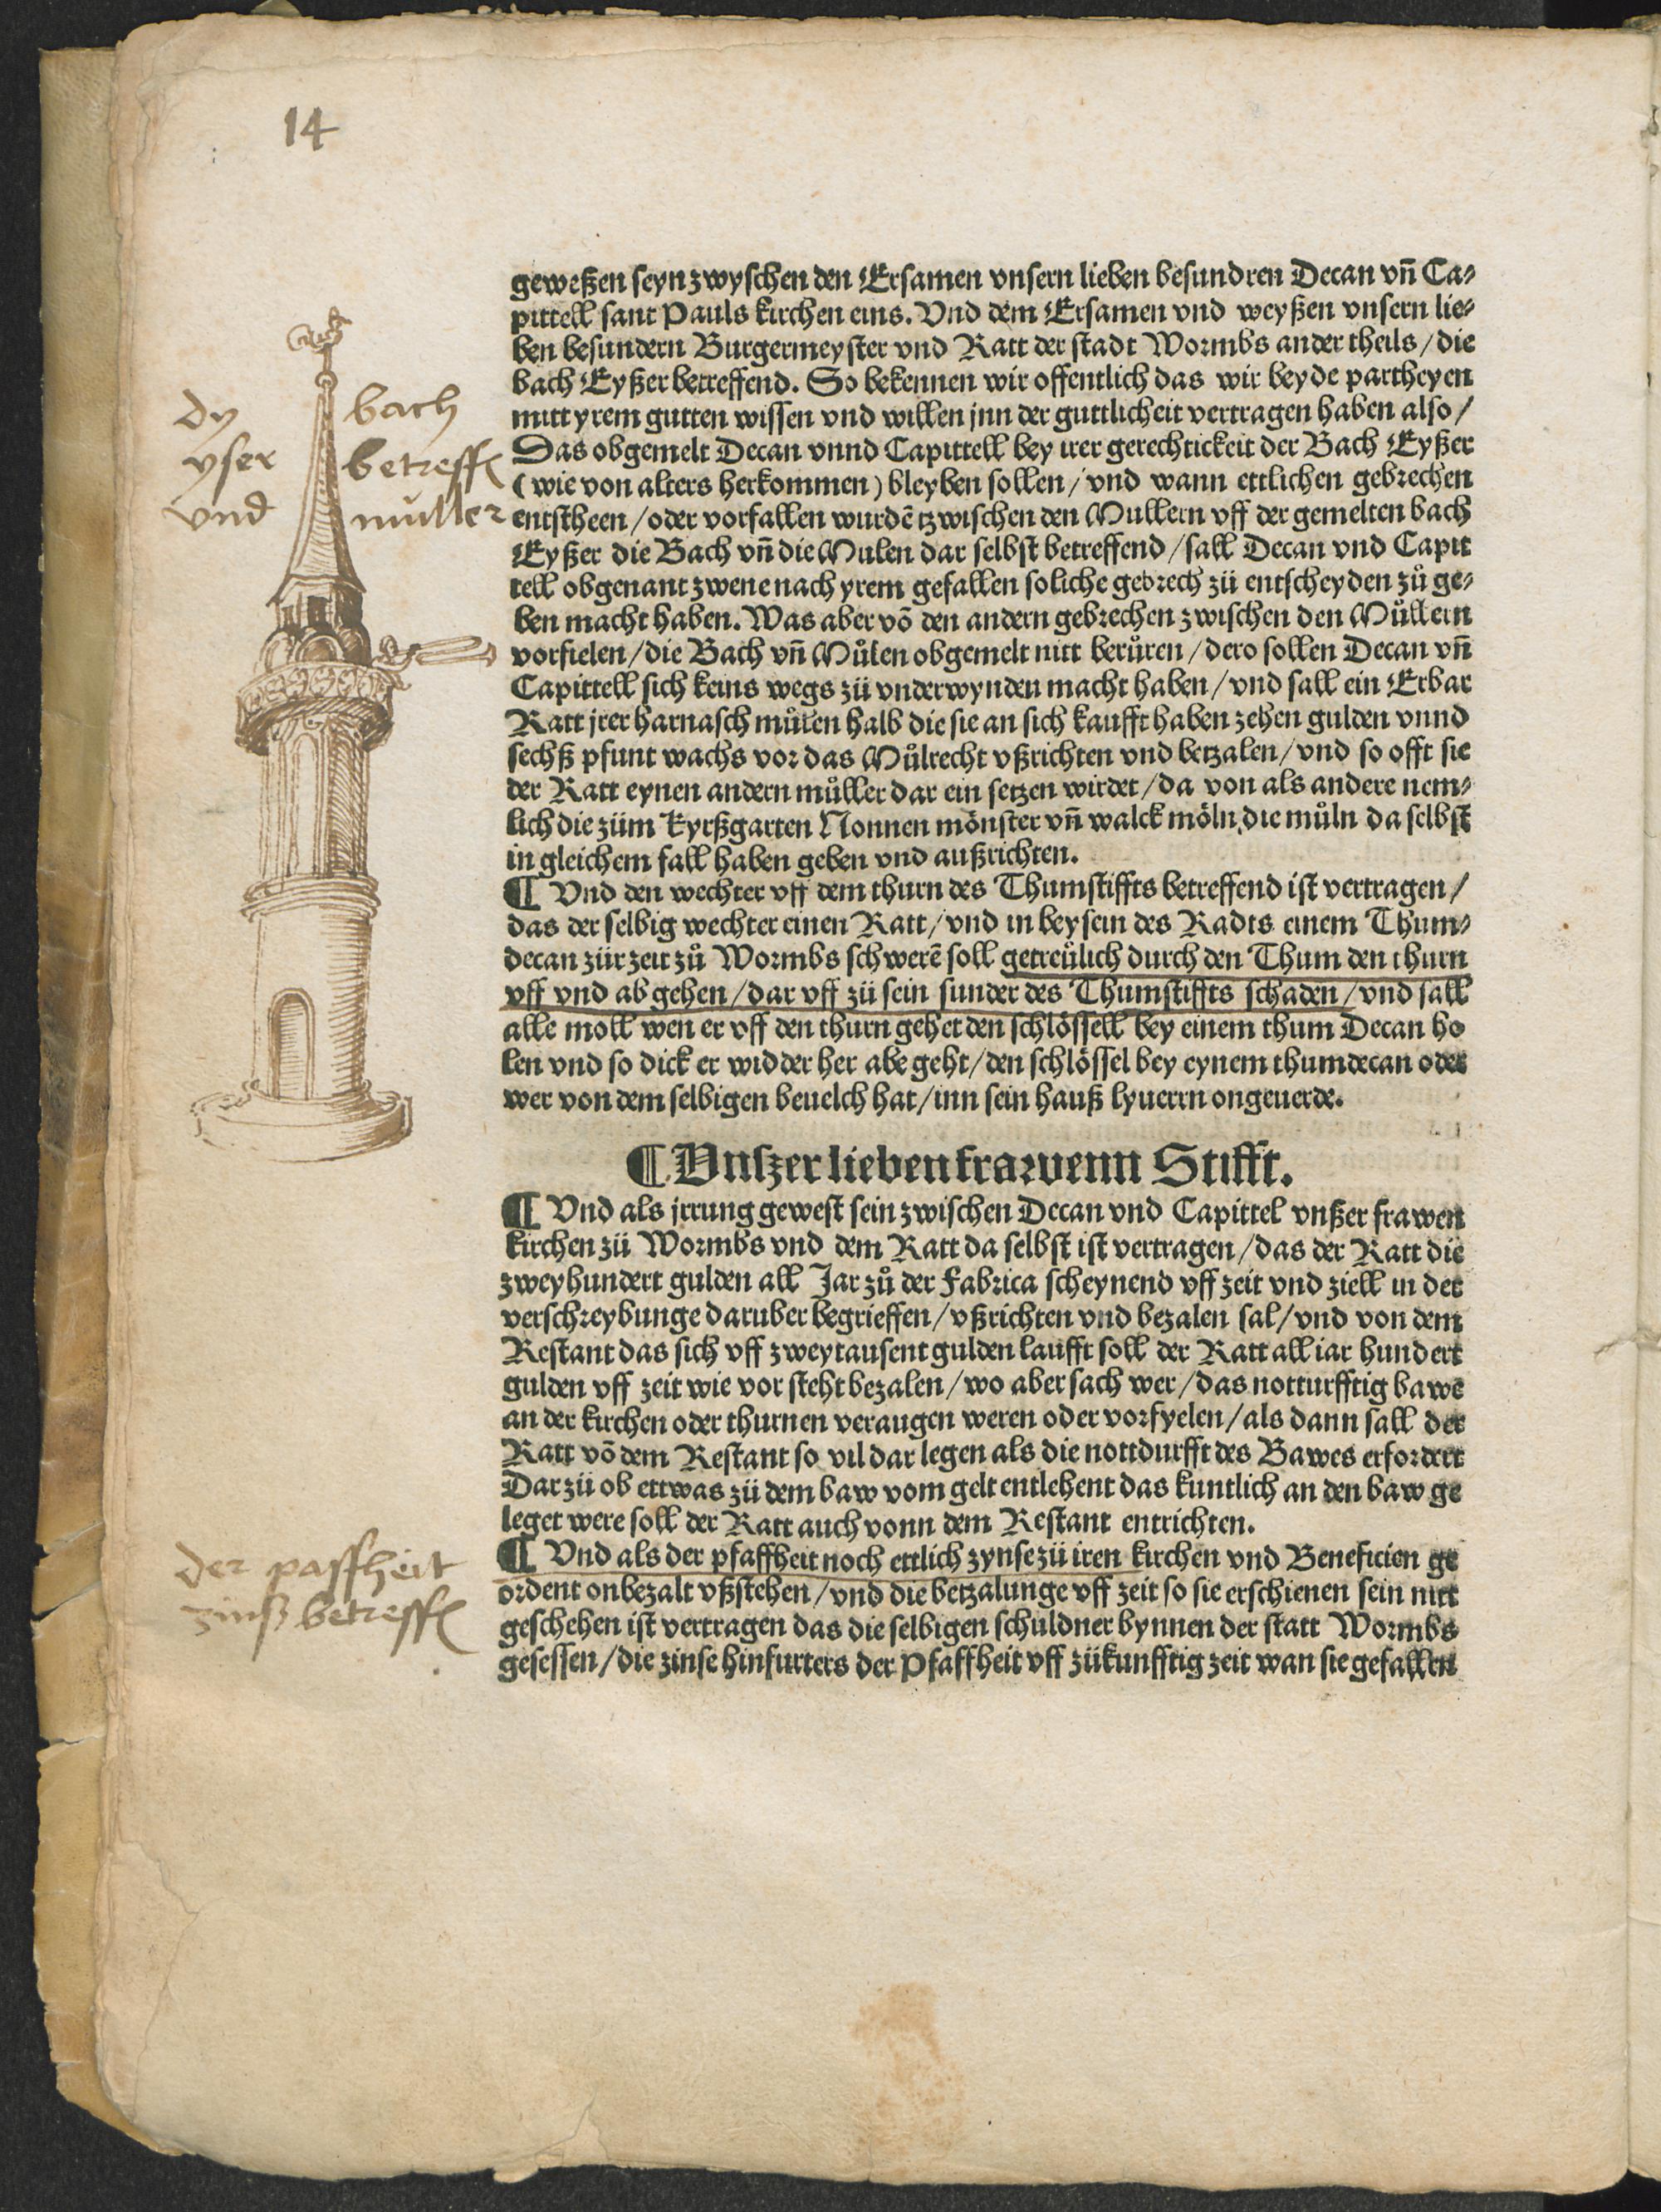 14
geweßen seyn zwyschen den Ersamen vnsern lieben besundren Decan vn̄ Ca⸗
pittell sant Pauls kirchen eins. Vnd dem Ersamen vnd weyßen vnsern lie⸗
ben besundern Burgermeyster vnd Ratt der stadt Wormbs ander theils / die
bach Eyßer betreffend. So bekennen wir offentlich das wir beyde partheyen
mitt yrem gutten wissen vnd willen jnn der guttlicheit vertragen haben also /
Das obgemelt Decan vnnd Capittell bey irer gerechtickeit der Bach Eyßer
(wie von alters herkommen) bleyben sollen / vnd wann ettlichen gebrechen
entstheen / oder vorfallen wurdē tzwischen den Mullern vff der gemelten bach
Eyßer die Bach vn̄ die Mulen dar selbst betreffend / sall Decan vnd Capit
tell obgenant zwene nach yrem gefallen soliche gebrech zü entscheyden zů ge⸗
ben macht haben. Was aber vō den andern gebrechen zwischen den Můllern
vorfielen / die Bach vn̄ Můlen obgemelt nitt berůren / dero sollen Decan vn̄
Capittell sich keins wegs zü vnderwynden macht haben / vnd sall ein Erbar
Ratt jrer harnasch můlen halb die sie an sich kaufft haben zehen gulden vnnd
sechß pfunt wachs vor das Můlrecht vßrichten vnd betzalen / vnd so offt sie
der Ratt eynen andern můller dar ein setzen wirdet / da von als andere nem⸗
lich die züm Kyrßgarten Nonnen mönster vn̄ walck möln, die můln da selbst
in gleichem fall haben geben vnd außrichten.
¶ Vnd den wechter vff dem thurn des Thumstiffts betreffend ist vertragen /
das der selbig wechter einen Ratt / vnd in beysein des Radts einem Thum⸗
decan zür zeit zů Wormbs schwerē soll getreülich durch den Thum den thurn
vff vnd ab gehen / dar vff zü sein sunder des Thumstiffts schaden / vnd sall
alle moll wen er vff den thurn gehet den schlössell bey einem thum Decan ho
len vnd so dick er widder her abe geht / den schlössel bey eynem thumdecan oder
wer von dem selbigen beuelch hat / inn sein hauß lyuerrn ongeuerde.
¶ Vnszer lieben frawenn Stifft.
¶ Vnd als jrrung gewest sein zwischen Decan vnd Capittel vnßer frawen
kirchen zü Wormbs vnd dem Ratt da selbst ist vertragen / das der Ratt die
zweyhundert gulden all Jar zů der Fabrica scheynend vff zeit vnd ziell in der
verschreybunge daruber begrieffen / vßrichten vnd bezalen sal / vnd von dem
Restant das sich vff zweytausent gulden laufft soll der Ratt all iar hundert
gulden vff zeit wie vor steht bezalen / wo aber sach wer / das notturfftig bawē
an der kirchen oder thurnen veraugen weren oder vorfyelen / als dann sall der
Ratt vō dem Restant so vil dar legen als die nottdurfft des Bawes erfordert
Dar zü ob ettwas zü dem baw vom gelt entlehent das kuntlich an den baw ge
leget were soll der Ratt auch vonn dem Restant entrichten.
¶ Vnd als der pfaffheit noch ettlich zynse zü iren kirchen vnd Beneficien ge
ordent onbezalt vßstehen / vnd die betzalunge vff zeit so sie erschienen sein nitt
geschehen ist vertragen das die selbigen schuldner bynnen der statt Wormbs
gesessen / die zinse hinfurters der Pfaffheit vff zükunfftig zeit wan sie gefallen
dy bach
yser betreff
vnd müller
der paffheit
zinß betreff